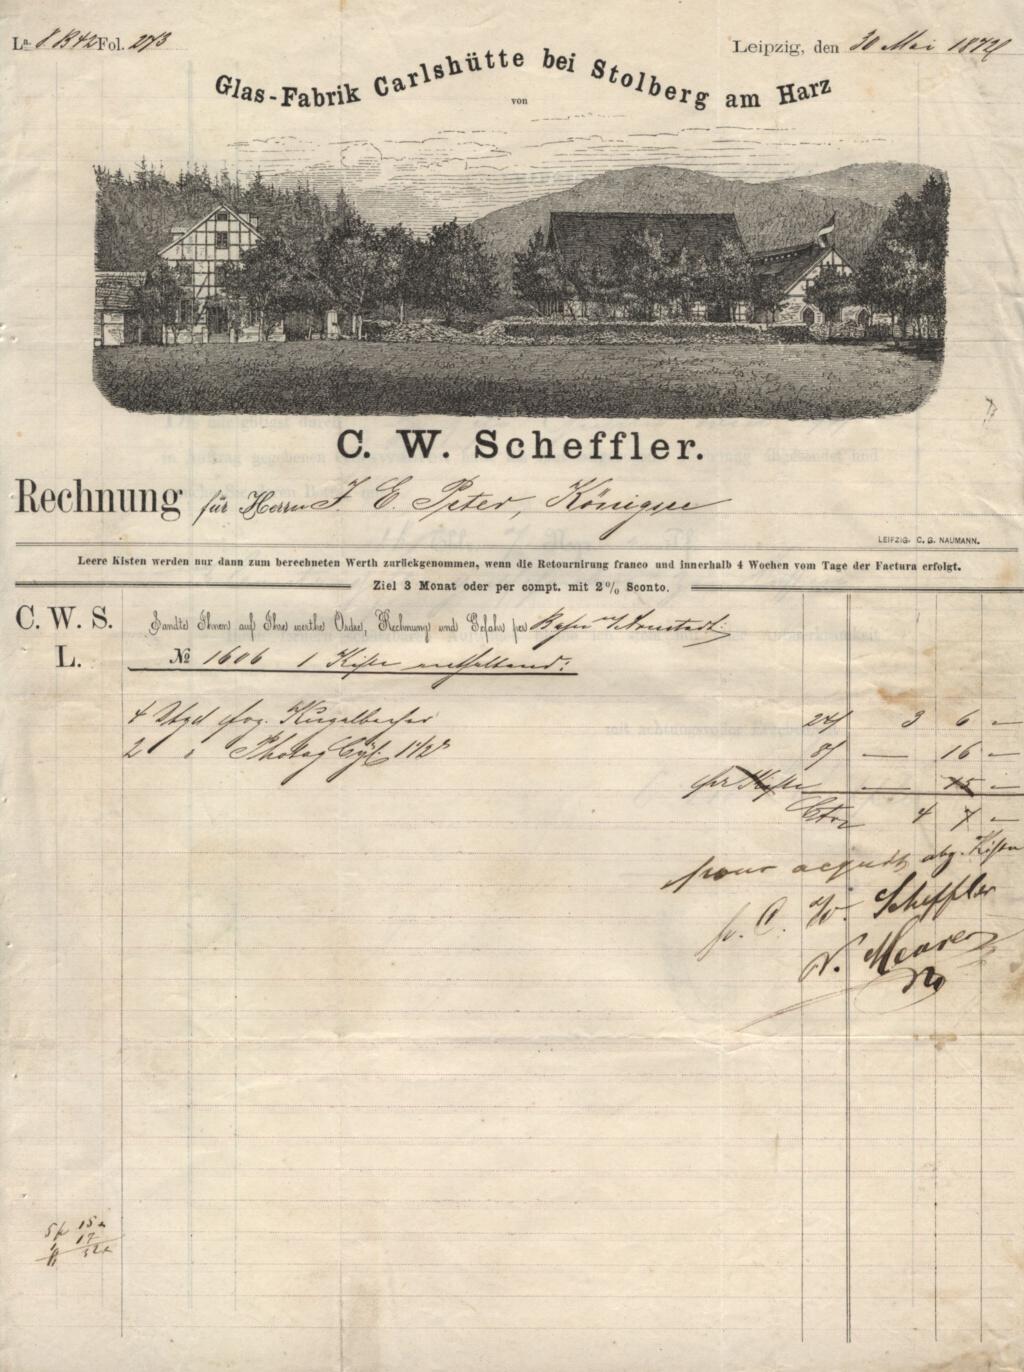 La. 8 B42 Fol. 273
Leipzig, den 30 Mai 187
Glas-Fabrik Carlshütte bei Stolberg am Harz
von
C. W. Scheffler.
Rechnung für Herrn J. E. Peter, Königsee
LEIPZIG. C. G. NAUMANN.
Leere Kisten werden nur dann zum berechneten Werth zurückgenommen, wenn die Retournirung franco und innerhalb 4 Wochen vom Tage der Factura erfolgt.
Ziel 3 Monat oder per compt. mit 2% Sconto.
C. W. S. Sandte Ihnen auf Ihre werthe Ordre, Rechnung und Gefahr per Bahn Arnstadt:
L. No 1606 1 Kiste enthaltend:
4 Dtzd Kugelbecher 24/ 3 6 –
2 " Photog Cyl. 1 1/2" 8/ — 16 –
für Kiste — 15 –
4 7 –
abz. Kiste
p. C. W. Scheffler